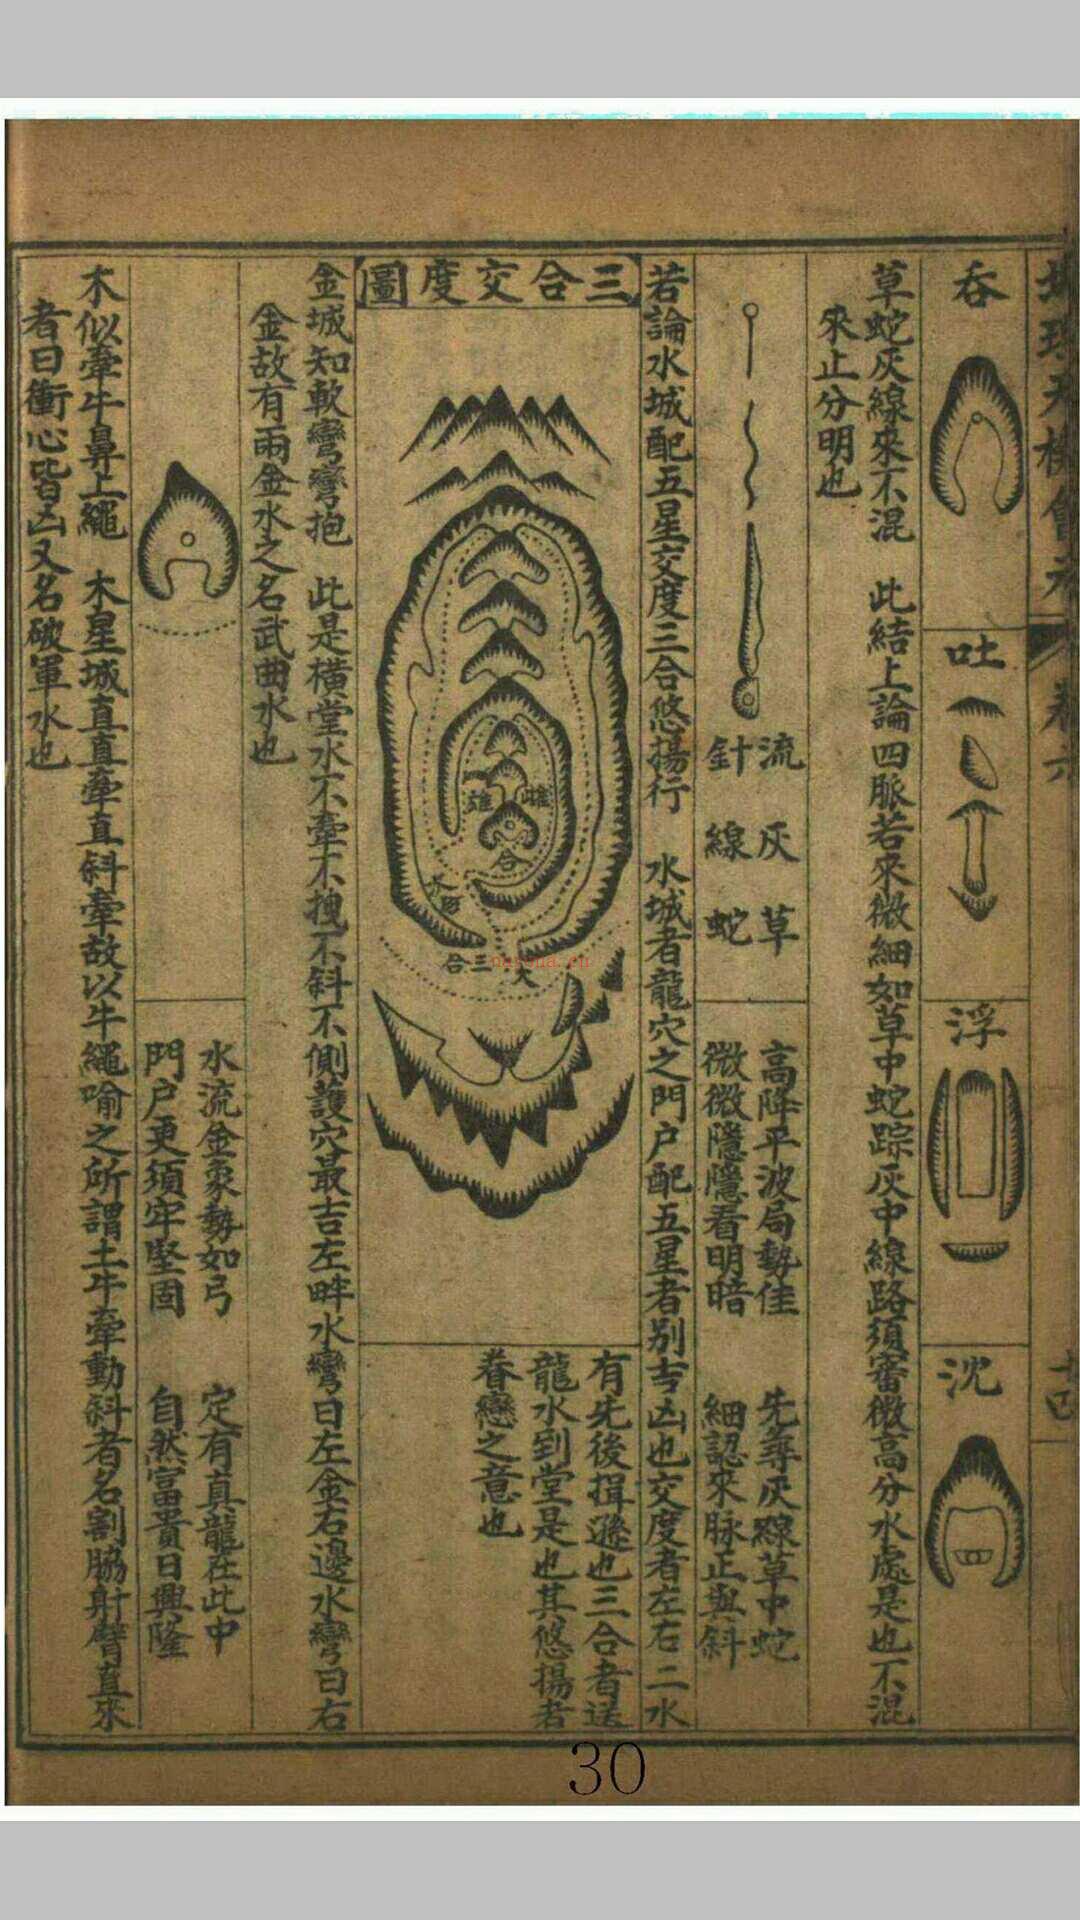 呑
吐
浮
沈
草蛇灰線來不混　此結上論四脈若來微細如草中蛇踪灰中線路須審微高分水處是也不混
來止分明也
流　灰　草
針　線　蛇
高降平波局勢佳　先尋灰線草中蛇
微微隱隱看明暗　細認來脉正與斜
若論水城配五星交度三合悠揚行　水城者龍穴之門户配五星者别吉凶也交度者左右二水
有先後揖遜也三合者送
龍水到堂是也其悠揚者
眷戀之意也
三合交度圖
雌
雄
合
大
三合
金城知軟彎彎抱　此是橫堂水不牽不拽不斜不側護穴最吉左畔水彎曰左金右邊水彎曰右
金故有兩金水之名武曲水也
水流金象勢如弓　定有真龍在此中
門户更須牢堅固　自然富貴日興隆
木似牽牛鼻上繩　木星城直直牽直斜牽故以牛繩喻之所謂土牛牽動斜者名割脇射臂直來
者曰衝心皆凶又名破軍水也
30